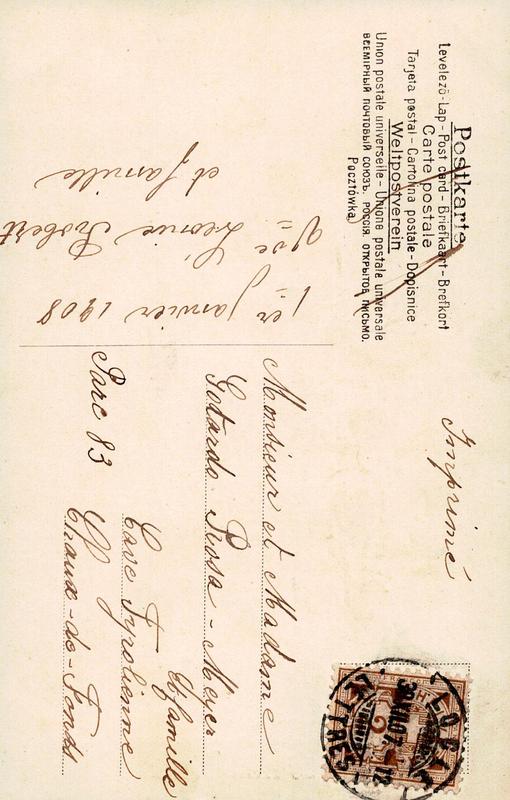 Postkarte
Carte postale
Levelező-Lap - Post card - Briefkaart - Brefkort
Tarjeta postal - Cartolina postale - Dopisnice
Weltpostverein
Union postale universelle - Unione postale universale
ВСЕМІРНЫЙ ПОЧТОВЫЙ СОЮЗЪ. РОССІЯ. ОТКРЫТОЕ ПИСЬМО.
Pocztówka
1er janvier 1908
Vve Léonie Robert
et famille
Imprimé
Monsieur et Madame
Gotardo Rosa-Meyer
& famille
Cave Tyrolienne
Parc 83 Chaux-de-Fonds
LOCLE
LETTRES
2